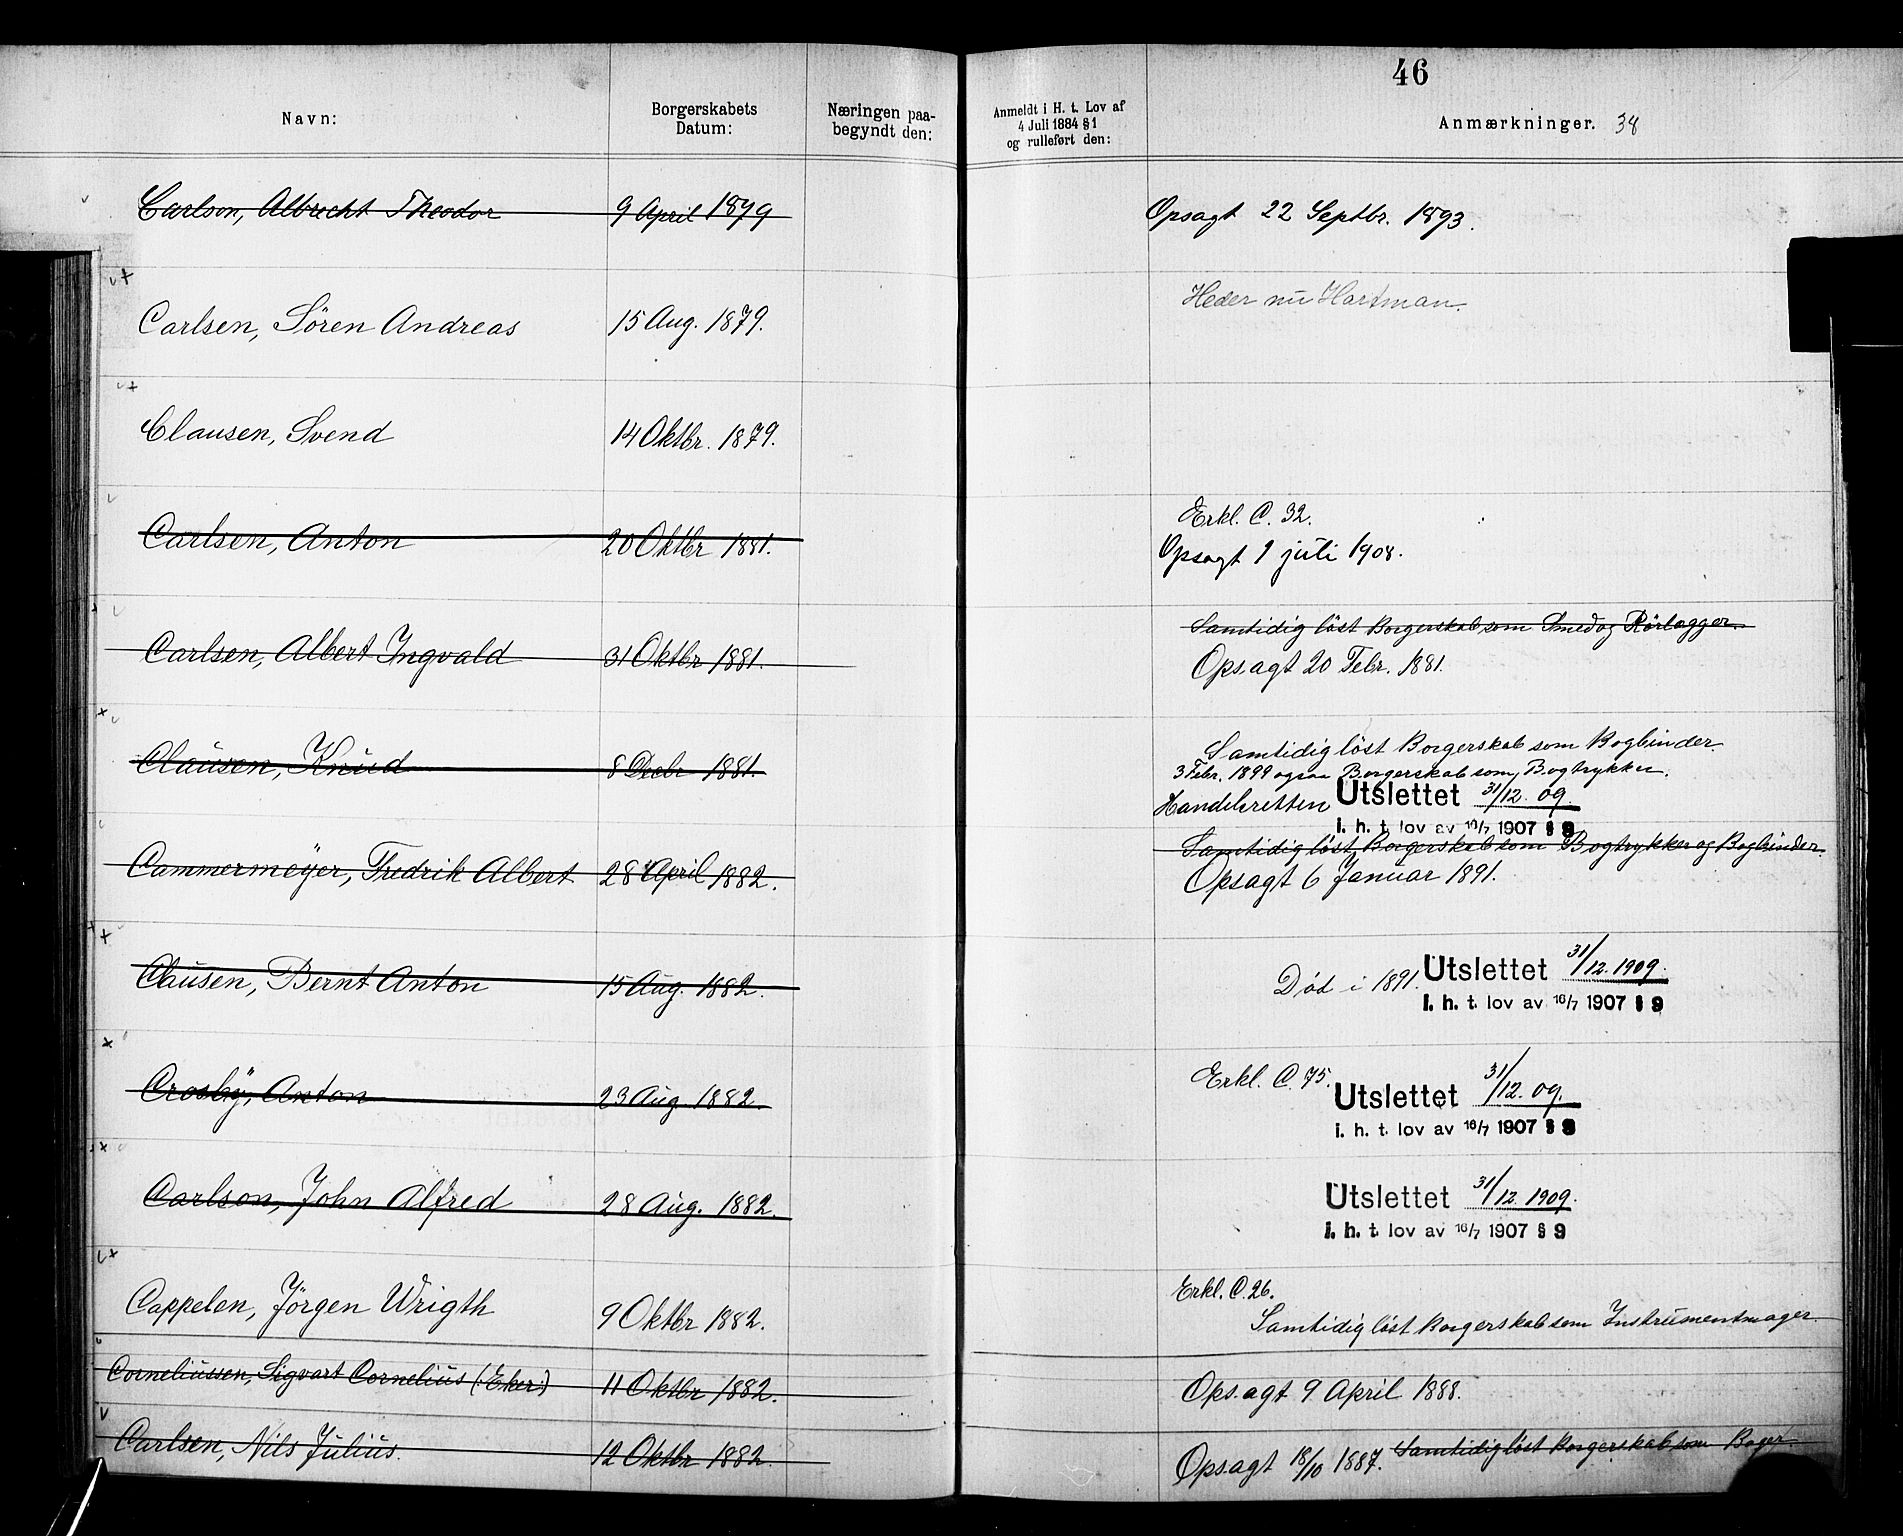 46
Navn:
Borgerskabets
Datum:
Næringen paa-
begyndt den:
Anmeldt i H. t. Lov af
4 Juli 1884 § 1
og rulleført den:
Anmærkninger. 38
Carlson, Albrecht Theodor 9 April 1879 Opsagt 22 Septbr. 1893.
Carlsen, Søren Andreas 15 Aug. 1879. Heder nu Hartman.
Clausen, Svend 14 Oktbr. 1879.
Erkl. C. 32.
Carlsen, Anton 20 Oktbr 1881. Opsagt 1 juli 1908.
Samtidig løst Borgerskab som Smed og Rörlægger.
Carlsen, Albert Ingvald 31 Oktbr 1881. Opsagt 20 Febr. 1881.
Samtidig løst Borgerskab som Bogbinder.
Clausen, Knud 8 Decbr 1881. 3 Febr. 1899 ogsaa Borgerskab som Bogtrykker.
Handelsretten Utslettet 31/12. 09.
i. h. t. lov av 16/7 1907 § 9
Samtidig løst Borgerskab som Bogtrykker og Bogbinder.
Cammermeyer, Fredrik Albert 28 April 1882. Opsagt 6 Januar 1891.
Clausen, Bernt Anton 15 Aug. 1882. Død i 1891. Utslettet 31/12. 1909.
i. h. t. lov av 16/7 1907 § 9
Crosby, Anton 23 Aug. 1882. Erkl. C. 75. Utslettet 31/12. 09.
i. h. t. lov av 16/7 1907 § 9
Carlson, John Alfred 28 Aug. 1882. Utslettet 31/12. 1909.
i. h. t. lov av 16/7 1907 § 9
Erkl. C. 26.
Cappelen, Jörgen Wrigth 9 Oktbr 1882. Samtidig løst Borgerskab som Instrumentmager.
Corneliussen, Sigvart Cornelius (:Eker:) 11 Oktbr 1882. Opsagt 9 April 1888.
Carlsen, Nils Julius. 12 Oktbr 1882. Opsagt 18/10 1887. Samtidig løst Borgerskab som Bager.